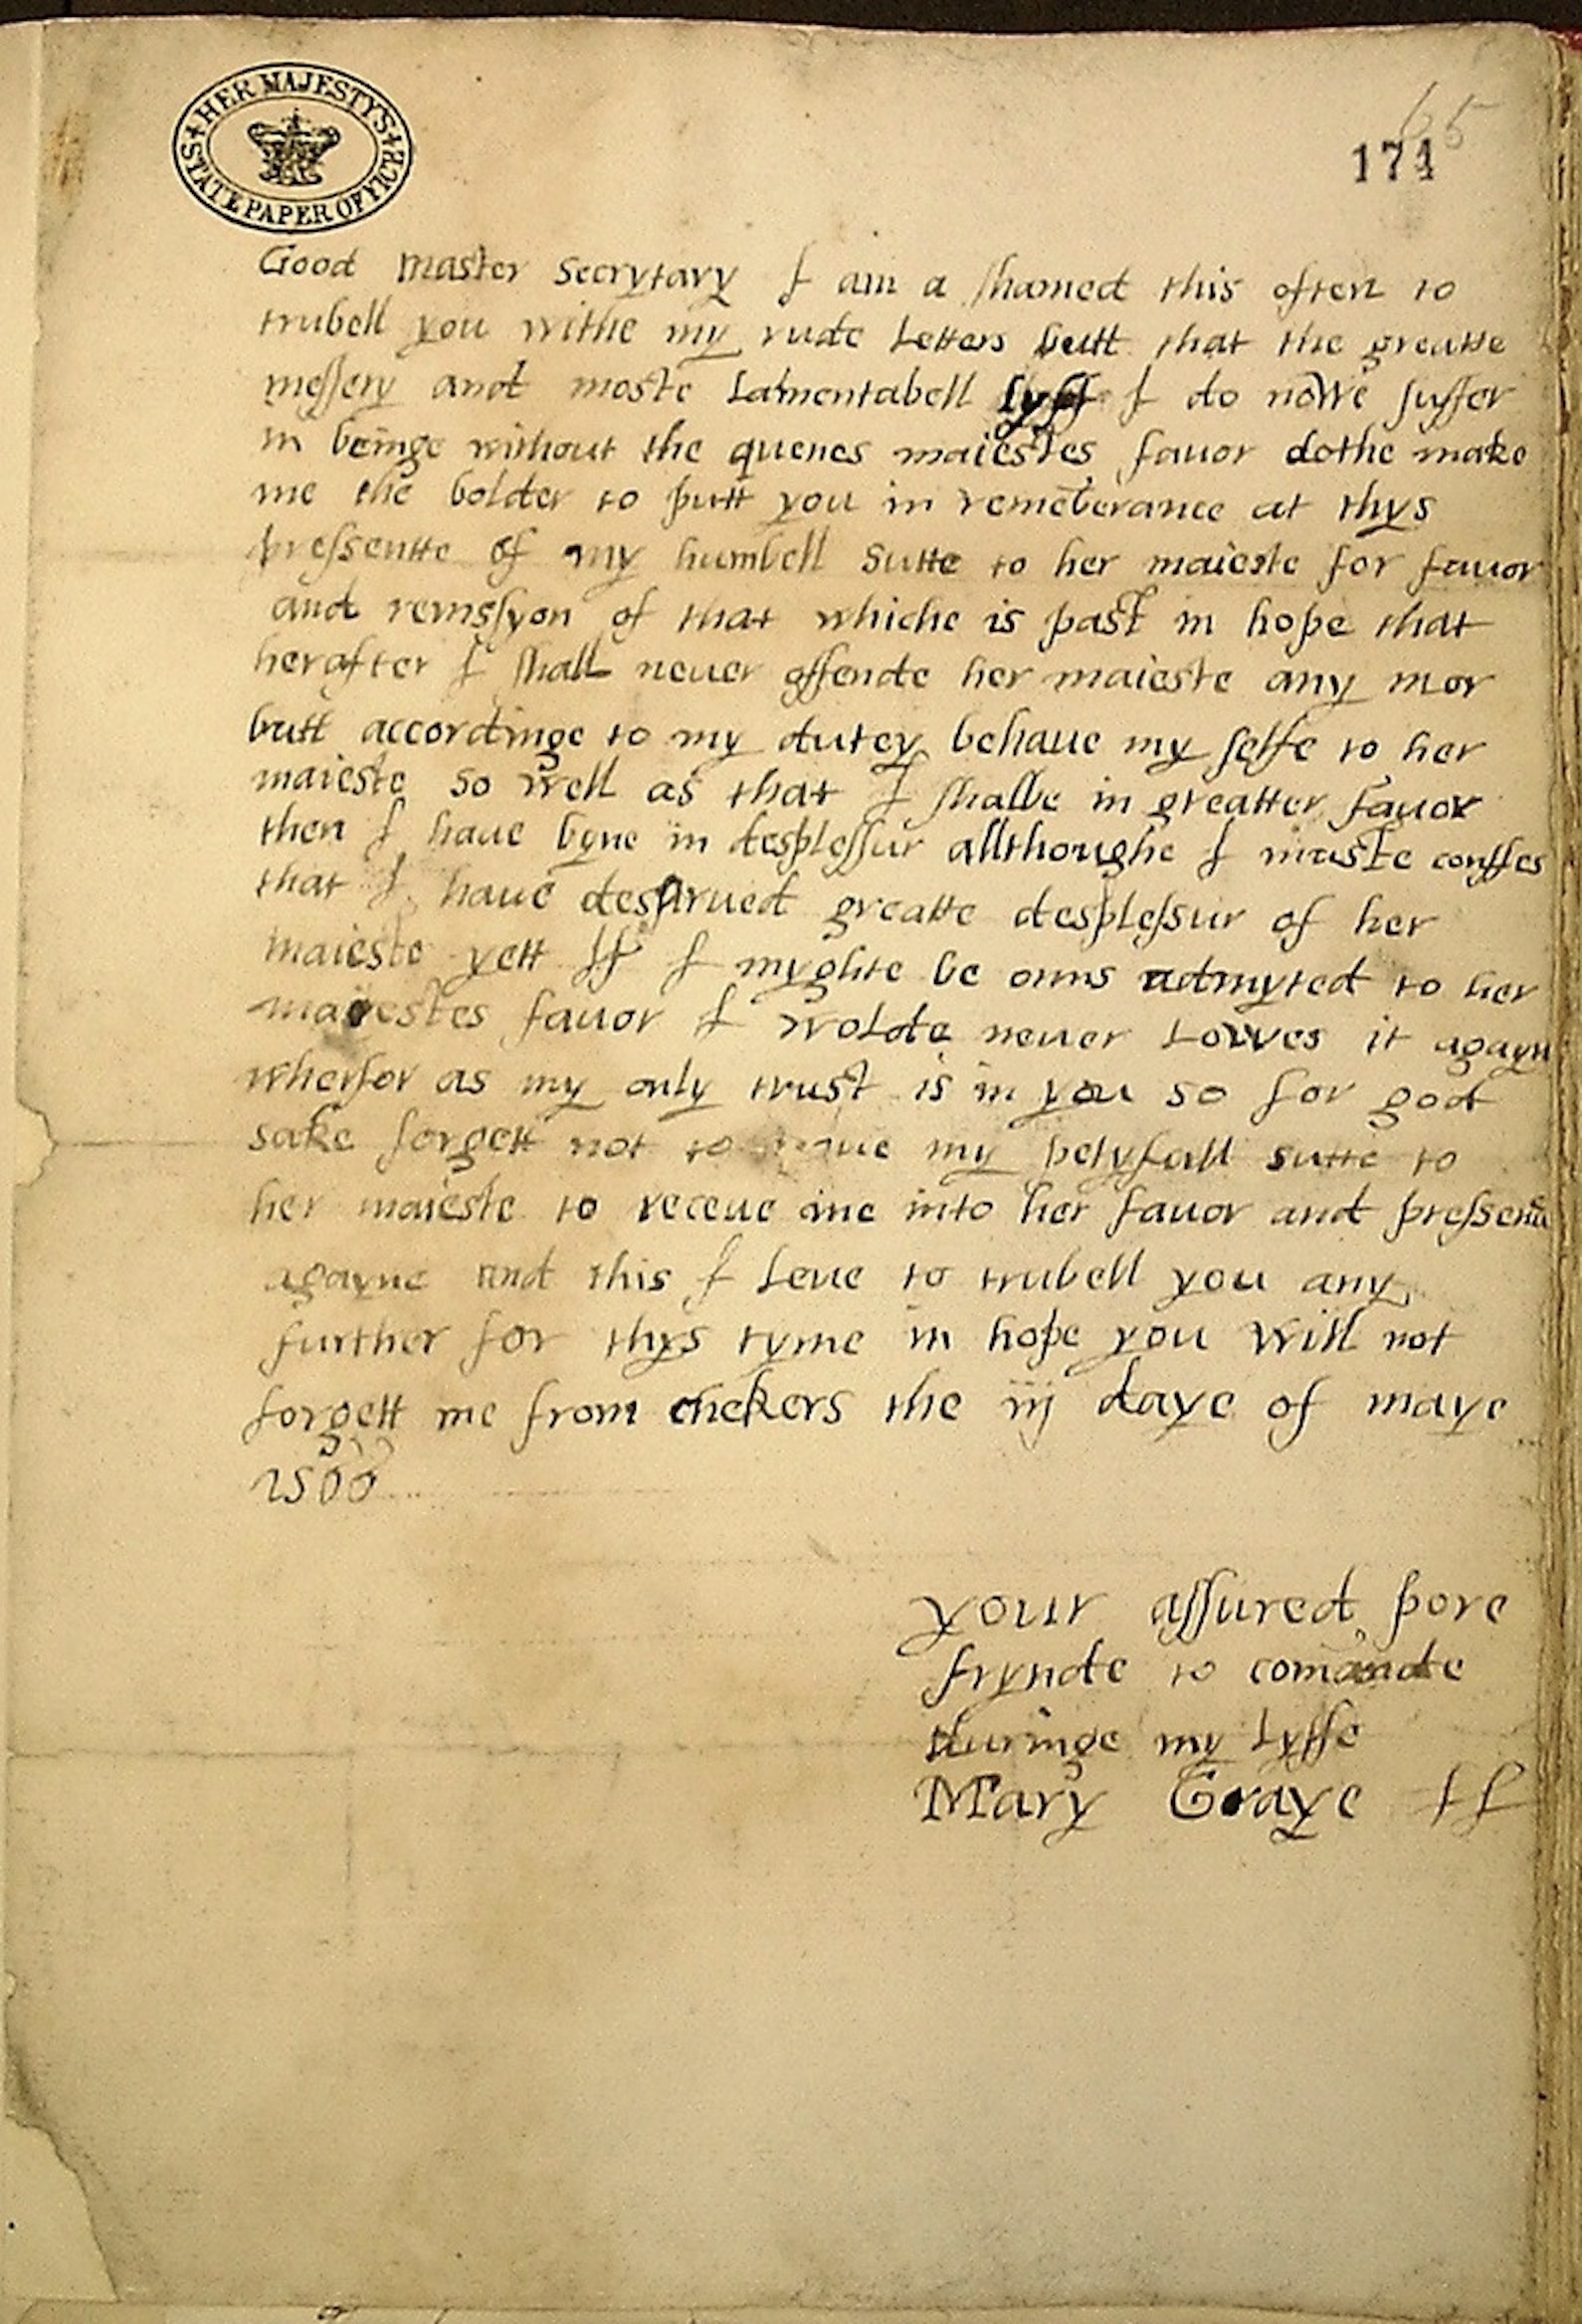 HER MAJESTY'S STATE PAPER OFFICE
65
174
Good master secrytary I am a shamed this often to
trubell you withe my rude Letters butt that the greatte
messery and moste Lamentabell lyff I do nowe suffer
in beinge without the quenes maiestes favor dothe make
me the bolder to putt you in remēberance at thys
pressentte of my humbell sutte to her maieste for favor
and remssyon of that whiche is past in hope that
herafter I shall never offende her maieste any mor
butt accordinge to my dutey behave my selfe to her
maieste so well as that I shalbe in greatter favor
then I have byne in desplessur allthoughe I muste conffes
that I have deserved greatte desplessur of her
maieste yett If I myghte be onns admyted to her
maiestes favor I wolde never Lowes it agayn
wherfor as my only trust is in you so for god
sake forgett not to my petyfull sutte to
her maieste to receve me into her favor and
agayne and this I Leve to trubell you any
further for thys tyme in hope you will not
forgett me from chekers the iij daye of maye
1566
your assured pore
frynde to comānde
duringe my Lyffe
Mary Graye